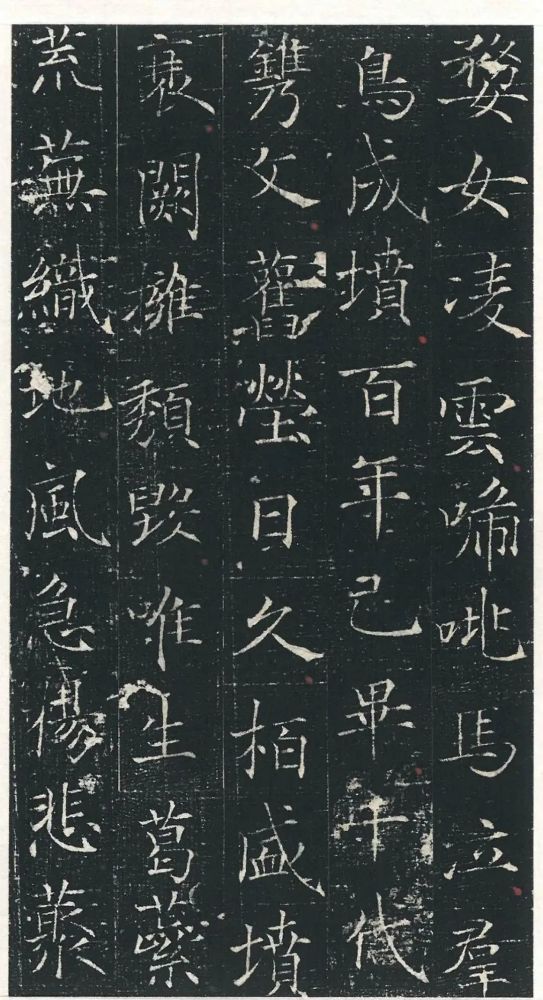 婺女凌雲啼吡馬立羣
鳥成墳百年已畢千代
鐫文舊塋日久栢盛墳
闕擁頹毀唯生葛
荒蕪織地風急傷悲藂